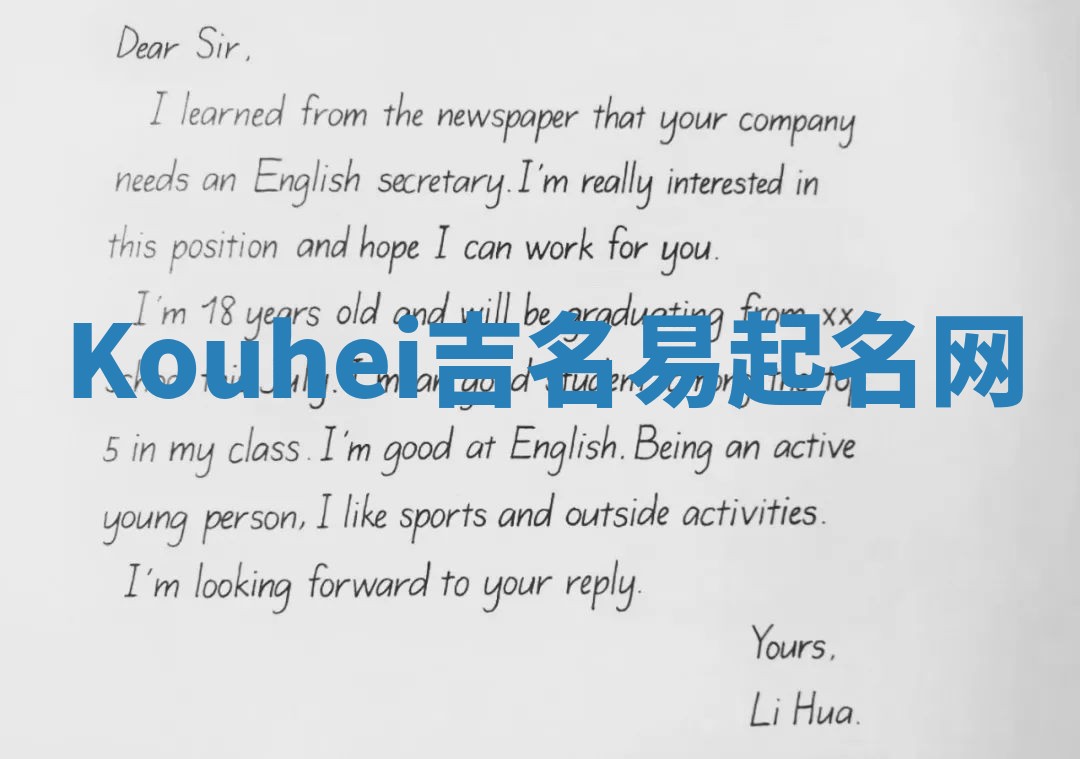 Dear Sir,
I learned from the newspaper that your company
needs an English secretary. I'm really interested in
this position and hope I can work for you.
I'm 18 years old and will be graduating from xx
Kouhei吉名易起名网
school this July. I'm a good student among the top
5 in my class. I'm good at English. Being an active
young person, I like sports and outside activities.
I'm looking forward to your reply.
Yours,
Li Hua.